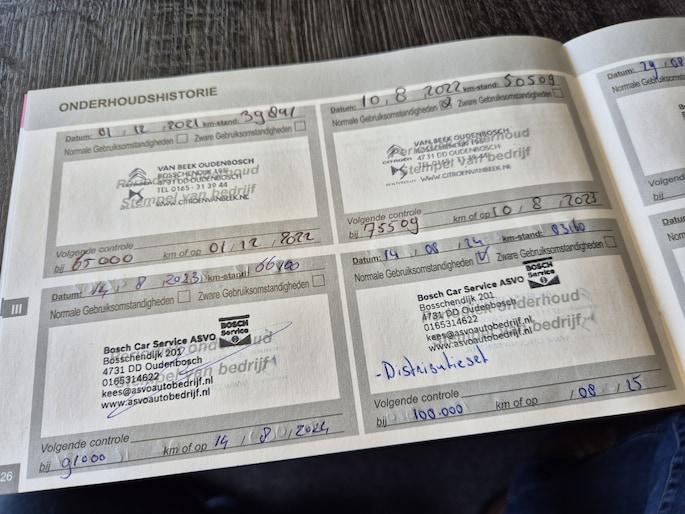 ONDERHOUDSHISTORIE
Datum: 01 / 12 / 2021 km-stand: 39841
Normale Gebruiksomstandigheden Zware Gebruiksomstandigheden
VAN BEEK OUDENBOSCH
BOSSCHENDIJK 195
4731 DD OUDENBOSCH
TEL 0165 - 31 39 44
Stempel van bedrijf
WWW.CITROENVANBEEK.NL
Volgende controle
bij 65000 km of op 01 / 12 / 2022
Datum: 10 , 8 , 2022 km-stand: 50509
Normale Gebruiksomstandigheden Zware Gebruiksomstandigheden
VAN BEEK OUDENBOSCH
BOSSCHENDIJK 195
CITROËN 4731 DD OUDENBOSCH
TEL 0165 - 31 39 44
Stempel van bedrijf
WWW.CITROENVANBEEK.NL
Volgende controle
bij 75509 km of op 10 / 8 / 2023
Datum: 14 / 8 2023 km-stand: 66400
Normale Gebruiksomstandigheden Zware Gebruiksomstandigheden
Bosch Car Service ASVO BOSCH Service
Bosschendijk 201
4731 DD Oudenbosch
0165314622
Stempel van bedrijf
kees@asvoautobedrijf.nl
www.asvoautobedrijf.nl
Volgende controle
bij 91000 km of op 14 / 8 / 2024
Datum: 14 / 08 / 24 km-stand: 83160
Normale Gebruiksomstandigheden Zware Gebruiksomstandigheden
Bosch Car Service ASVO BOSCH Service
Bosschendijk 201
4731 DD Oudenbosch
0165314622
Stempel van bedrijf
kees@asvoautobedrijf.nl
www.asvoautobedrijf.nl
- Distributieset
Volgende controle
bij 100.000 km of op / 08 / 25
Datum: 29 / 08
Normale Geb
Volgende
bij
Datum:
Normale G
III
26